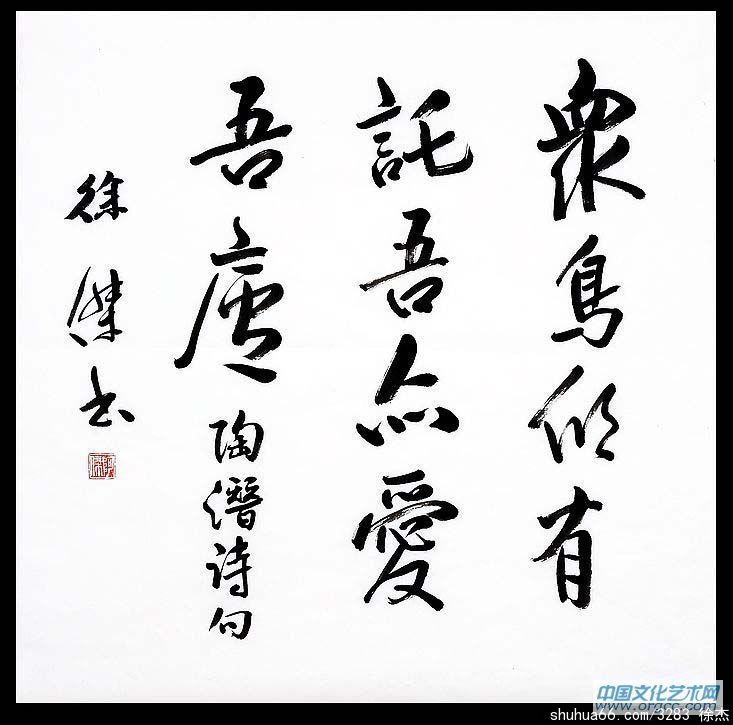 衆鳥欣有
託吾亦愛
吾廬 陶潛诗句
徐傑书
中国文化艺术网
www.orgcc.com
shuhua66.com/3283 徐杰